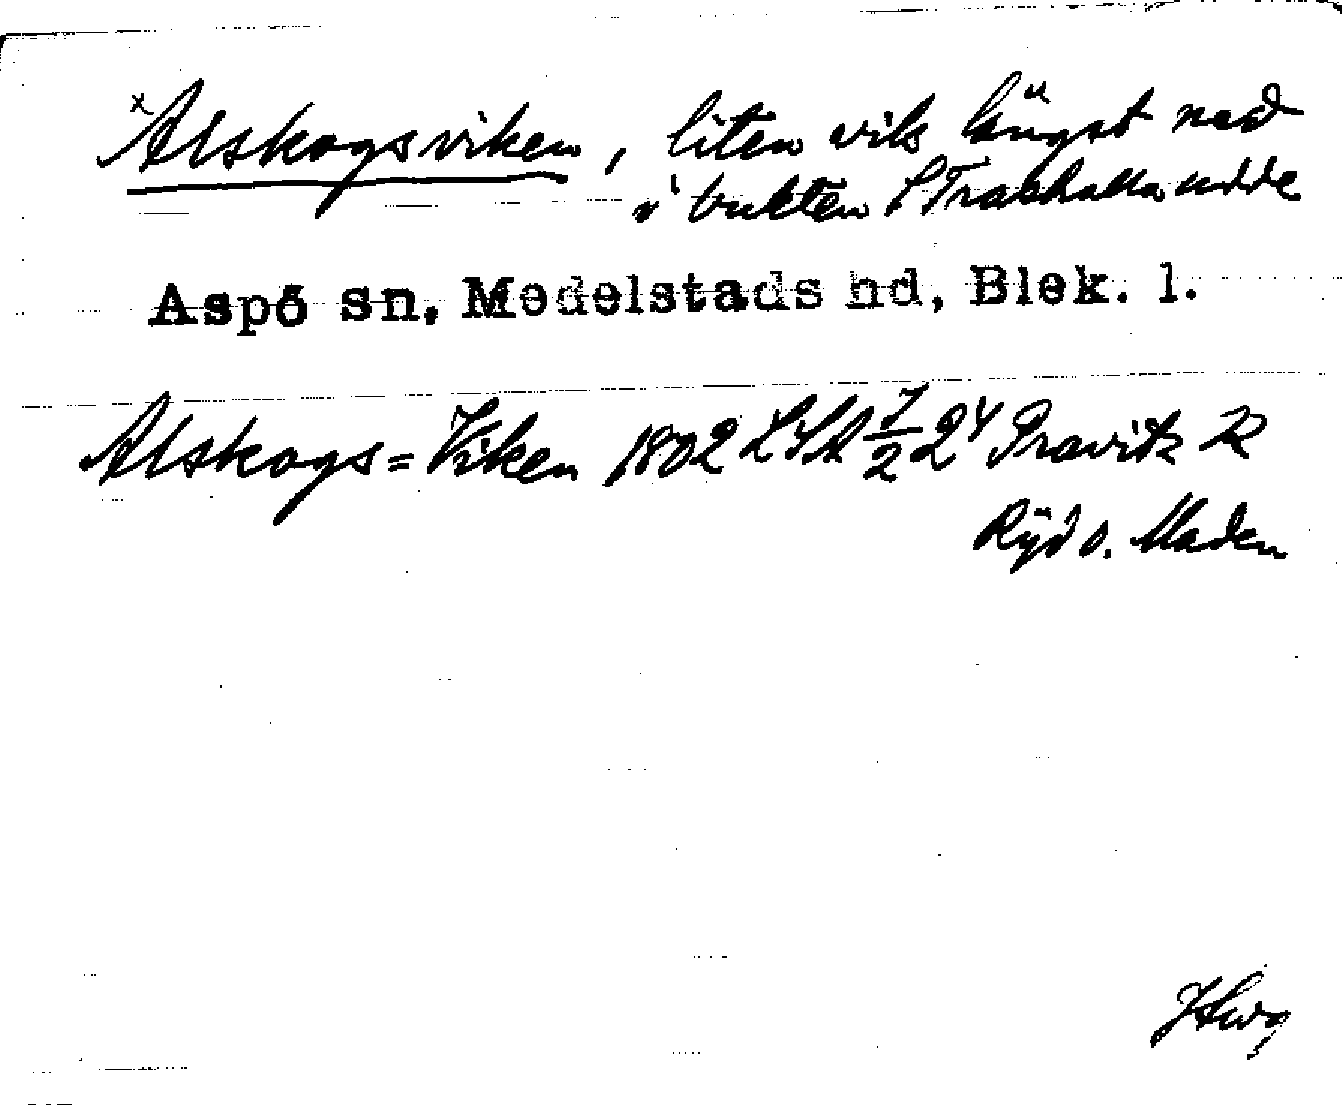 x Alskogsviken, liten vik längst ned
i bukten S Trashalla udde
Aspö sn, Medelstads hd, Blek. l.
Alskogs=Viken 1802 LSA 7/2 24 Pravitz R
Ryd o. Maden